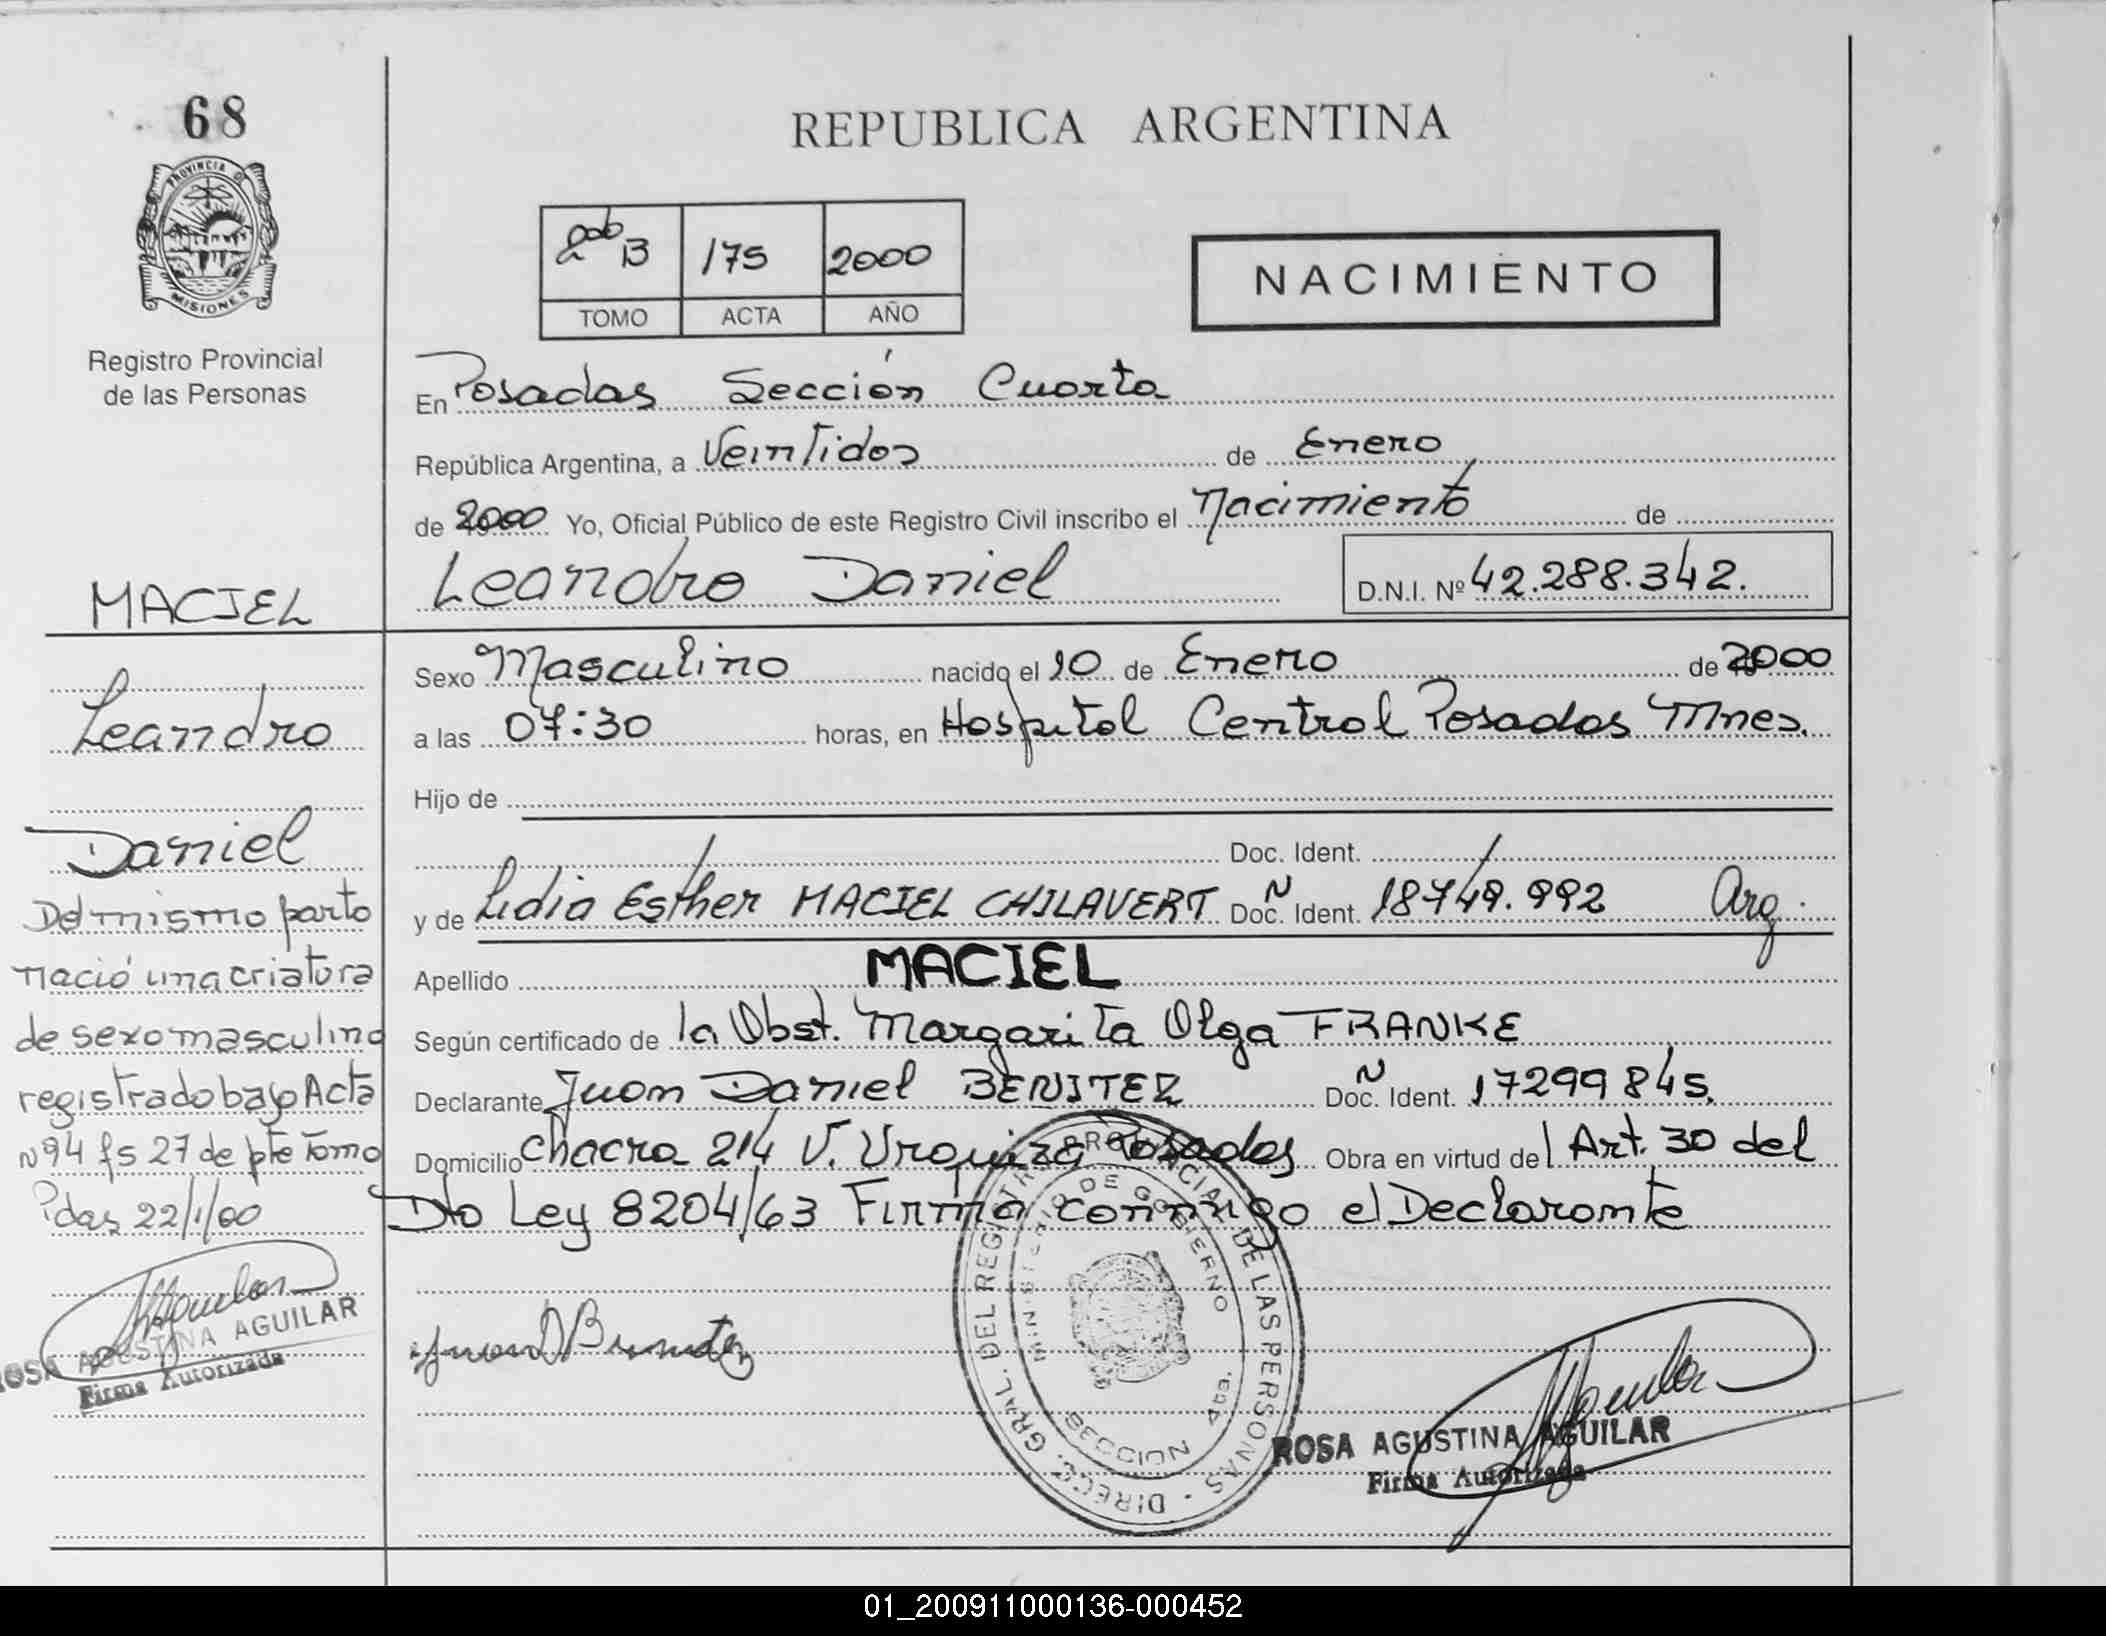 68
PROVINCIA DE
MISIONES
Registro Provincial
de las Personas
MACIEL
Leandro
Daniel
Del mismo parto
nació una criatura
de sexo masculino
registrado bajo Acta
Nº 94 fs 27 de pte Tomo
Pdas 22/1/00
ROSA AGUSTINA AGUILAR
Firma Autorizada
REPUBLICA ARGENTINA
13 175 2000
TOMO ACTA AÑO
NACIMIENTO
En Posadas Sección Cuarta
República Argentina, a Veintidos de Enero
de 2000 Yo, Oficial Público de este Registro Civil inscribo el Nacimiento de
Leandro Daniel D.N.I. Nº 42.288.342.
Sexo Masculino nacido el 10 de Enero de 2000
a las 07:30 horas, en Hospital Central Posadas Mnes.
Hijo de
Doc. Ident.
y de Lidia Esther MACIEL CHILAVERT Doc. Ident. 18749.992 Arg.
Apellido MACIEL
Según certificado de la Obst. Margarita Olga FRANKE
Declarante Juan Daniel BENITEZ Doc. Ident. 17299845.
Domicilio Chacra 214 V. Urquiza Posadas Obra en virtud del Art. 30 del
Dto Ley 8204/63 Firma conmigo el Declarante
DIRECC. GRAL. DEL REGISTRO PROVINCIAL DE LAS PERSONAS
MINISTERIO DE GOBIERNO
SECCION 4ta.
Juan D Benitez
ROSA AGUSTINA AGUILAR
Firma Autorizada
01_200911000136-000452